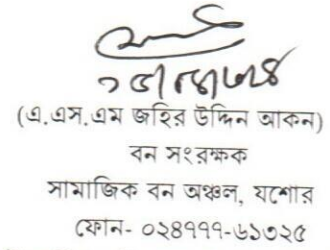 (এ.এস.এম জহির উদ্দিন আকন)
বন সংরক্ষক
সামাজিক বন অঞ্চল, যশোর
ফোন- ০২৪৭৭৭-৬১৩২৫